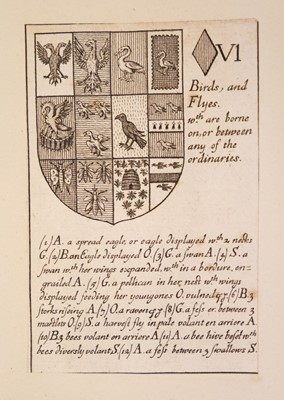 VI
Birds, and
Flyes.
wth are borne
on, or between
any of the
ordinaries.
(1) A. a spread eagle, or eagle displayed wth 2 necks
G. (2) B. an Eagle displayed O. (3) G. a swan A. (4) S. a
swan wth her wings expanded, wth in a bordure, en-
grailed A. (5) G. a pellican in her nest wth wings
displayed, feeding her youngones O. vulned g (6) B 3
storks riseing A. (7) O. a raven (8) G. a fess or. between 3
martlets O (9) S. a harvest fly in pale volant en arriere A
(10) B 3 bees volant en arriere A (11) A. a bee hive beset wth
bees diversly volant S (12) A a fess between 3 swallows S.